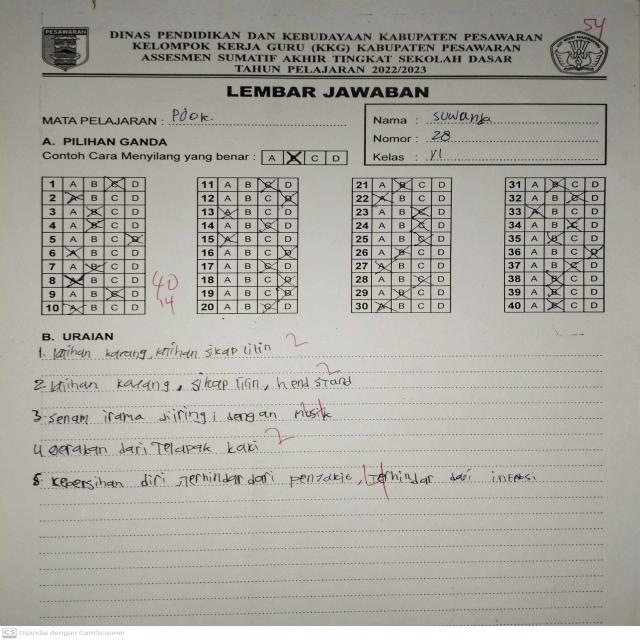 54
PESAWARAN
DINAS PENDIDIKAN DAN KEBUDAYAAN KABUPATEN PESAWARAN
KELOMPOK KERJA GURU (KKG) KABUPATEN PESAWARAN
ASSESMEN SUMATIF AKHIR TINGKAT SEKOLAH DASAR
TAHUN PELAJARAN 2022/2023
LEMBAR JAWABAN
MATA PELAJARAN : PJOK.
Nama :
Nomor : 28
Kelas : VI
A. PILIHAN GANDA
Contoh Cara Menyilang yang benar : A B C D
1 A B C D 11 A B C D 21 A B C D 31 A B C D
2 A B C D 12 A B C D 22 A B C D 32 A B C D
3 A B C D 13 A B C D 23 A B C D 33 A B C D
4 A B C D 14 A B C D 24 A B C D 34 A B C D
5 A B C D 15 A B C D 25 A B C D 35 A B C D
6 A B C D 16 A B C D 26 A B C D 36 A B C D
7 A B C D 17 A B C D 27 A B C D 37 A B C D
8 A B C D 18 A B C D 28 A B C D 38 A B C D
9 A B C D 19 A B C D 29 A B C D 39 A B C D
10 A B C D 20 A B C D 30 A B C D 40 A B C D
40
14
B. URAIAN
1. latihan karang, latihan sikap lilin 2
2. latihan karang, sikap lilin, hend stand 2
3. senam irama diiringi dengan musik 4
4. gerakan dari telapak kaki 2
5. kebersihan diri, terhindar dari penyakit, terhindar dari 4
CS Dipindai dengan CamScanner